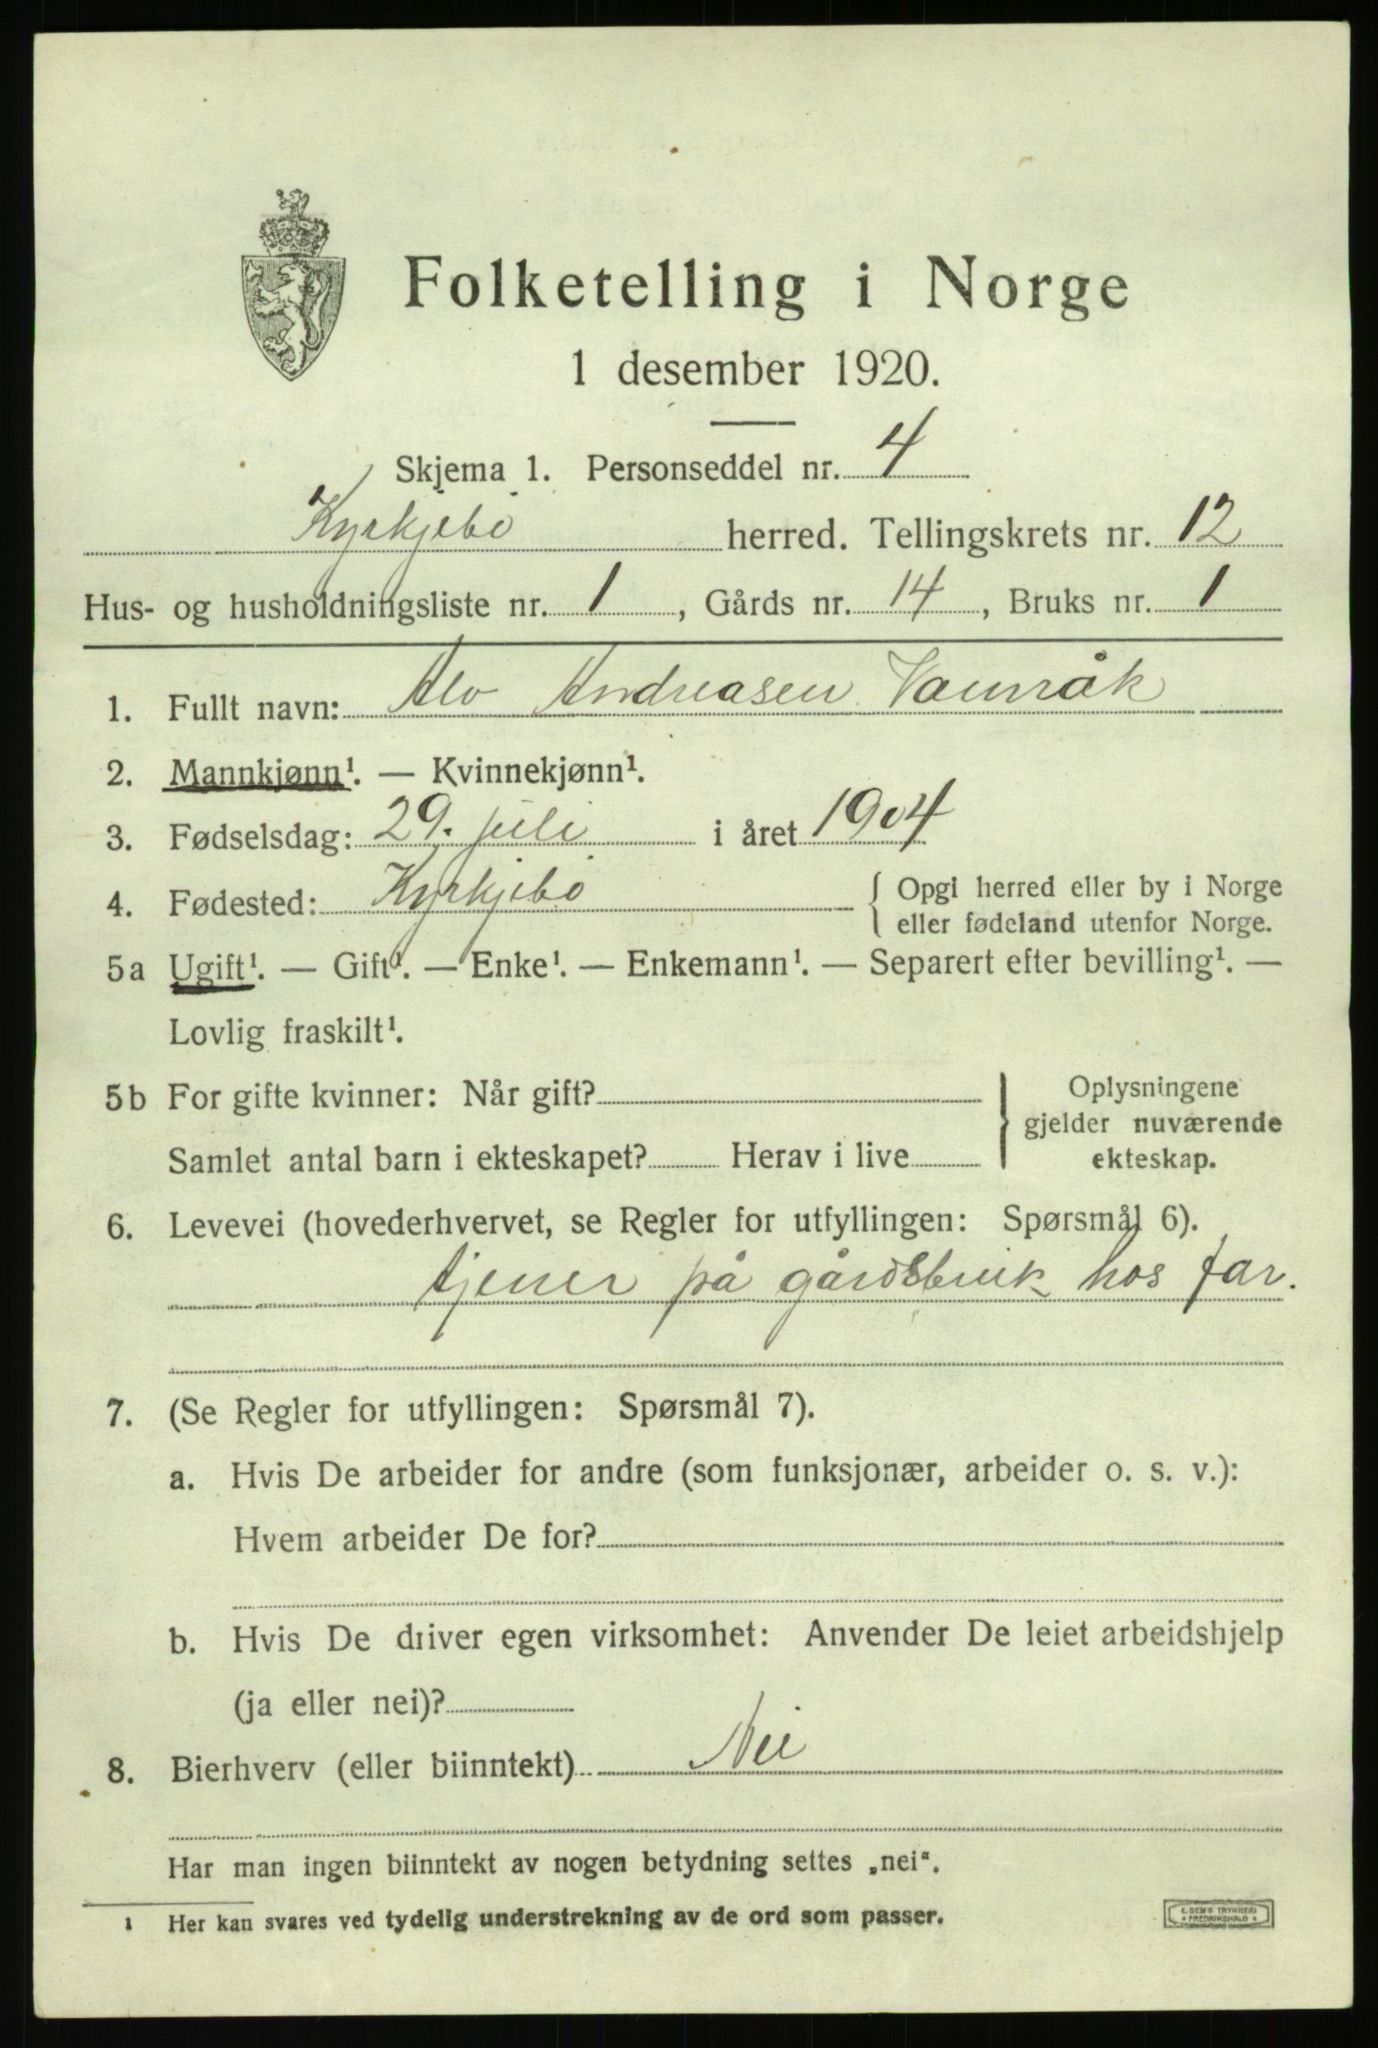 Folketelling i Norge
1 desember 1920.
Skjema 1. Personseddel nr. 4
Kyrkjebö herred. Tellingskrets nr. 12
Hus- og husholdningsliste nr. 1, Gårds nr. 14, Bruks nr. 1
1. Fullt navn: Alv Andreasen
2. Mannkjønn¹. — Kvinnekjønn¹.
3. Fødselsdag: 29. juli i året 1904
4. Fødested: Kyrkjebö { Opgi herred eller by i Norge
eller fødeland utenfor Norge.
5a Ugift¹. — Gift¹. — Enke¹. — Enkemann¹. — Separert efter bevilling¹. —
Lovlig fraskilt¹.
5b For gifte kvinner: Når gift?
Samlet antal barn i ekteskapet? Herav i live
} Oplysningene
gjelder nuværende
ekteskap.
6. Levevei (hovederhvervet, se Regler for utfyllingen: Spørsmål 6).
tjener på gårdsbruk hos far.
7. (Se Regler for utfyllingen: Spørsmål 7).
a. Hvis De arbeider for andre (som funksjonær, arbeider o. s. v.):
Hvem arbeider De for?
b. Hvis De driver egen virksomhet: Anvender De leiet arbeidshjelp
(ja eller nei)?
8. Bierhverv (eller biinntekt) Nei
Har man ingen biinntekt av nogen betydning settes „nei“.
1 Her kan svares ved tydelig understrekning av de ord som passer.
E. SEM'S TRYKKERI
FREDRIKSHALD